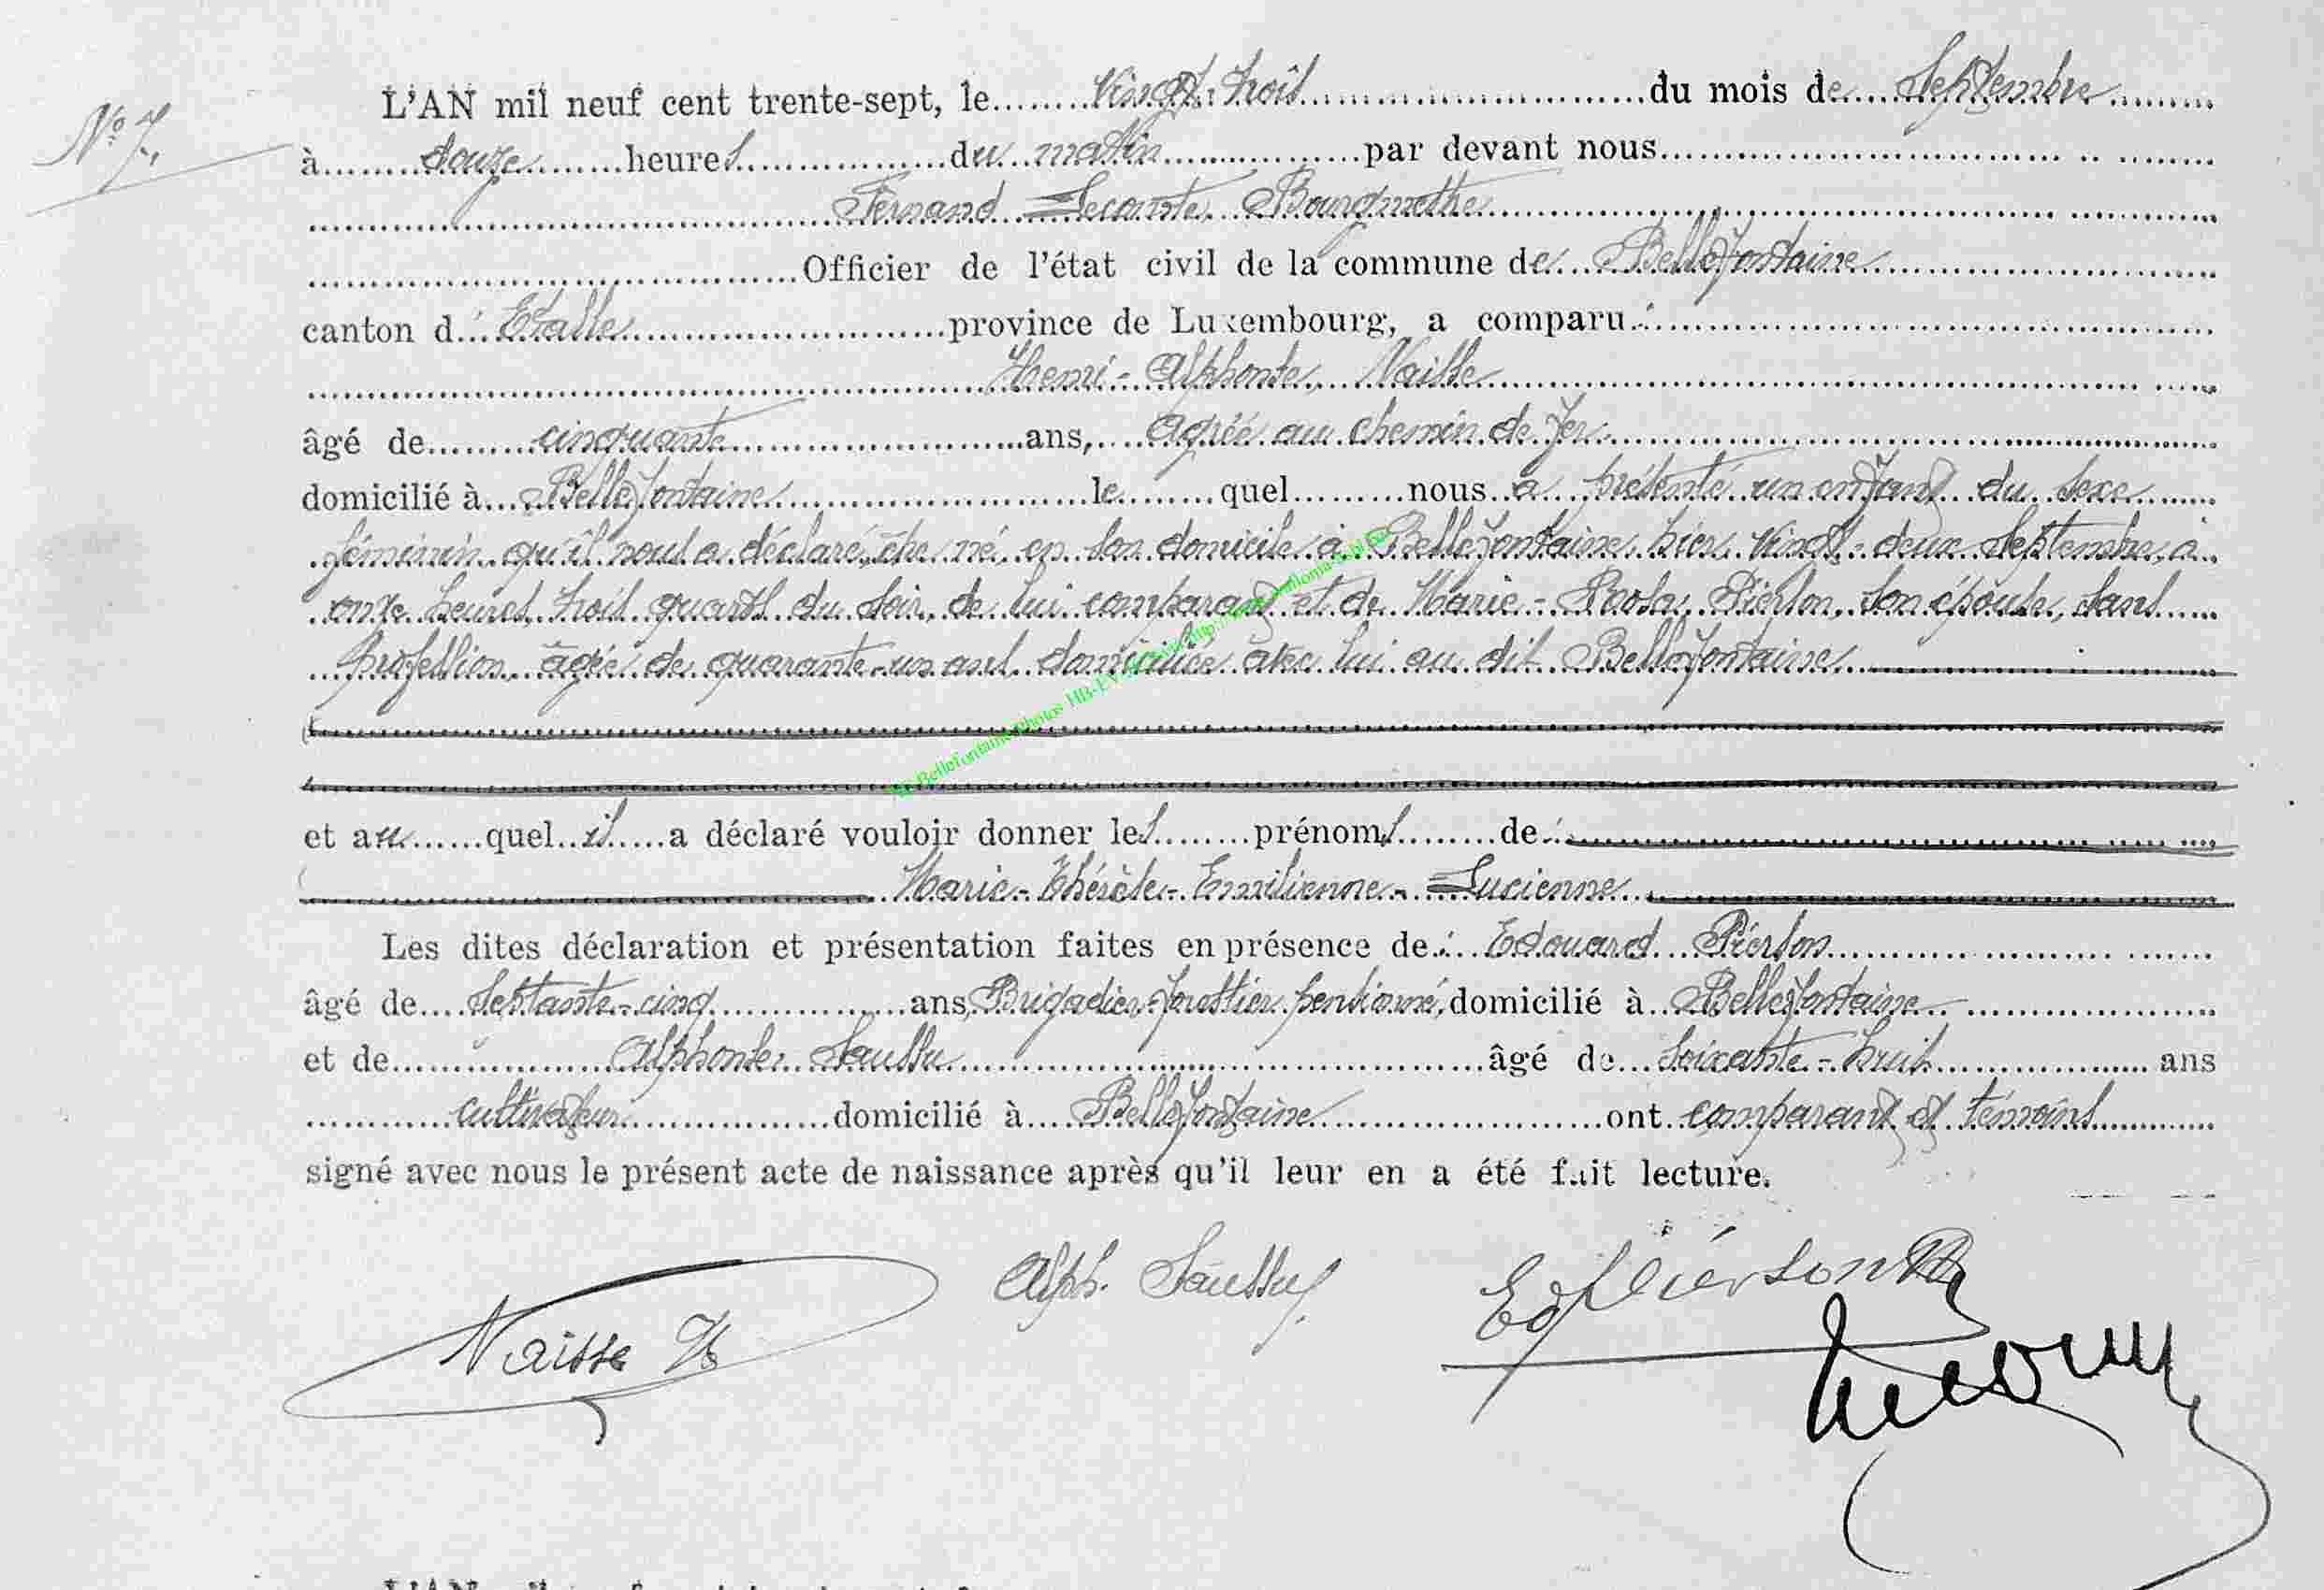 N° 7.
L'AN mil neuf cent trente-sept, le vingt-trois du mois de Septembre
à douze heures du matin par devant nous
Fernand Lecomte Bourgmestre
Officier de l'état civil de la commune de Bellefontaine
canton d' Etalle province de Luxembourg, a comparu :
Henri-Alphonse, Naisse
âgé de cinquante ans, agréé au chemin de fer
domicilié à Bellefontaine le quel nous a présenté un enfant du sexe
féminin qu'il nous a déclaré être né en son domicile à Bellefontaine, hier vingt-deux Septembre, à
onze heures trois quarts du soir, de lui comparant et de Marie-Rosa Pierson, son épouse, sans
profession, âgée de quarante-un ans, domiciliée avec lui au dit Bellefontaine
et au quel il a déclaré vouloir donner les prénoms de :
Marie-Thérèse-Emilienne-Lucienne
Les dites déclaration et présentation faites en présence de : Edouard Pierson
âgé de septante-cinq ans, Brigadier-forestier pensionné, domicilié à Bellefontaine
et de Alphonse Saussu âgé de soixante-huit ans
cultivateur domicilié à Bellefontaine ont comparant et témoins
signé avec nous le présent acte de naissance après qu'il leur en a été fait lecture.
Alph. Saussus
Ed Pierson
Naisse H